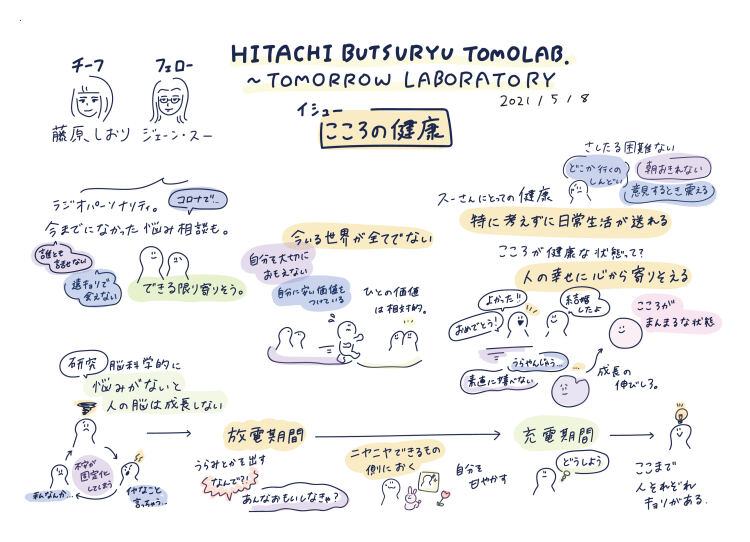 HITACHI BUTSURYU TOMOLAB.
～TOMORROW LABORATORY
2021/5/18
チーフ
フェロー
藤原しおり
ジェーン・スー
イシュー
こころの健康
ラジオパーソナリティ。
コロナで…
今までになかった悩み相談も。
誰とも
話せない
遠キョリで
会えない
できる限り寄りそう。
今いる世界が全てでない
自分を大切に
おもえない
自分に安い価値を
つけている
ひとの価値
は相対的。
さしたる困難ない
どこか行くの
しんどい
朝おきれない
意見するとき震える
スーさんにとっての健康
特に考えずに日常生活が送れる
こころが健康な状態って?
人の幸せに心から寄りそえる
よかった!!
おめでとう!
結婚
したよ
こころが
まんまるな状態
うらやんじゃう…
素直に喜べない
成長の
伸びしろ。
研究
脳科学的に
悩みがないと
人の脳は成長しない
不安が
固定化
してしまう
私なんか…
イヤなこと
言っちゃう…
放電期間
うらみとかを出す
なんで?!
あんなおもいしなきゃ?
ニヤニヤできるもの
側におく
自分を
甘やかす
充電期間
どうしよう
ここまで
人それぞれ
キョリがある.